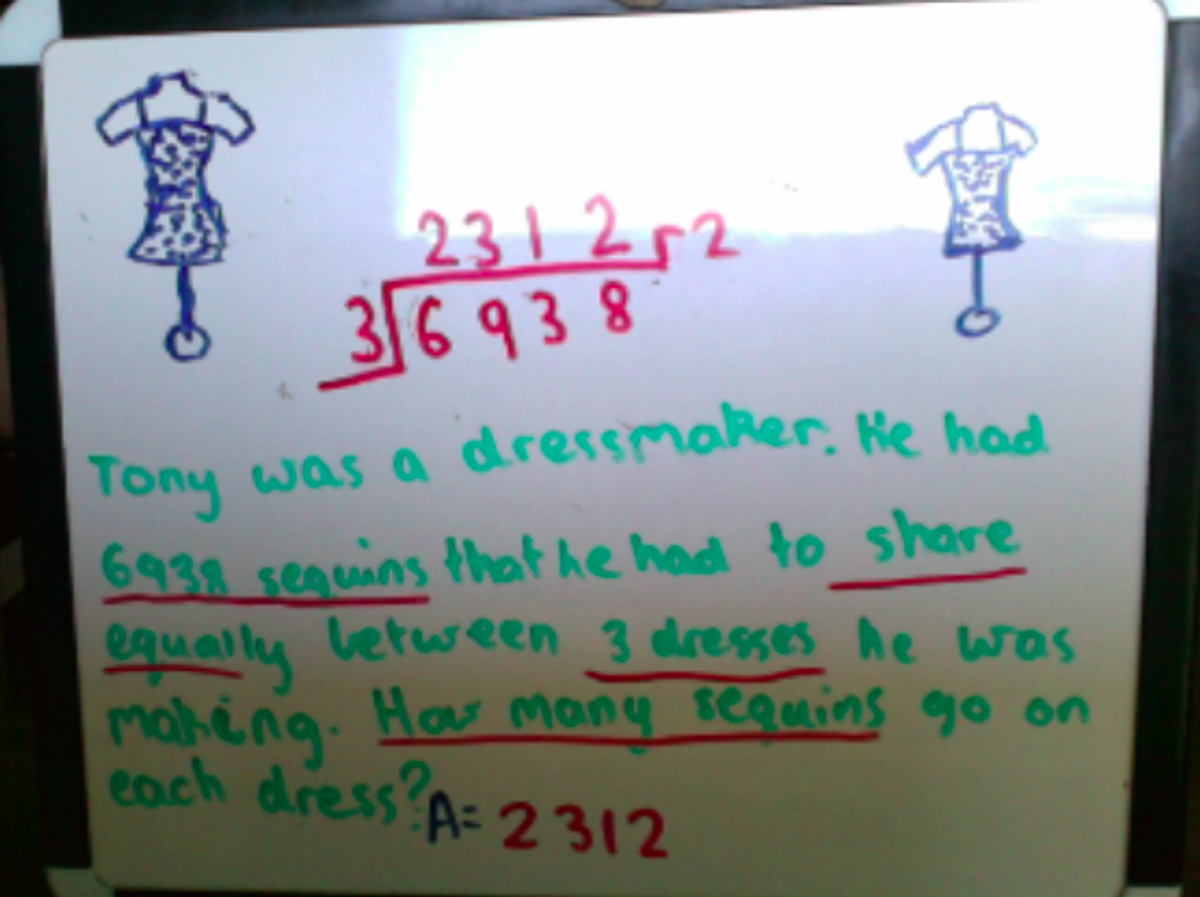 2312 r2
3 6938
Tony was a dressmaker. He had
6938 sequins that he had to share
equally between 3 dresses he was
making. How many sequins go on
each dress? A= 2312